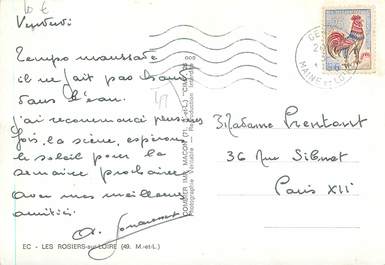 10 €
Vendredi
Temps maussade
il ne fait pas chaud
dans l'eau.
j'ai recommencé plusieurs
fois, la scène, espérons
le soleil pour la
semaine prochaine
avec mes meilleures
amitiés
Madame Prentant
36 Rue Sibuet
Paris XII
COMBIER IMP. MACON
Photographie Véritable — Reproduction Interdite
MAINE ET LOIRE
EC - LES ROSIERS-sur-LOIRE (49. M.-et-L.)